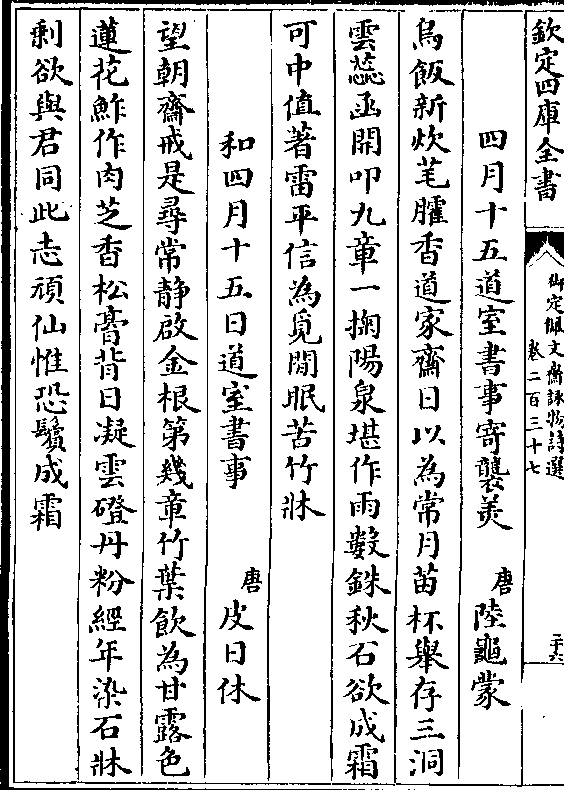 欽定四庫全書
御定佩文齋詠物詩選
卷二百三十七
二十六
四月十五道室書事寄襲美 唐 陸龜蒙
烏飯新炊芼臛香道家齋日以為常月苗杯舉存三洞
雲蕊函開叩九章一掬陽泉堪作雨數銖秋石欲成霜
可中值著雷平信為覓閒眠苦竹牀
和四月十五日道室書事 唐 皮日休
望朝齋戒是尋常静啟金根第幾章竹葉飲為甘露色
蓮花鮓作肉芝香松膏背日凝雲磴丹粉經年染石牀
剩欲與君同此志頑仙惟恐鬢成霜